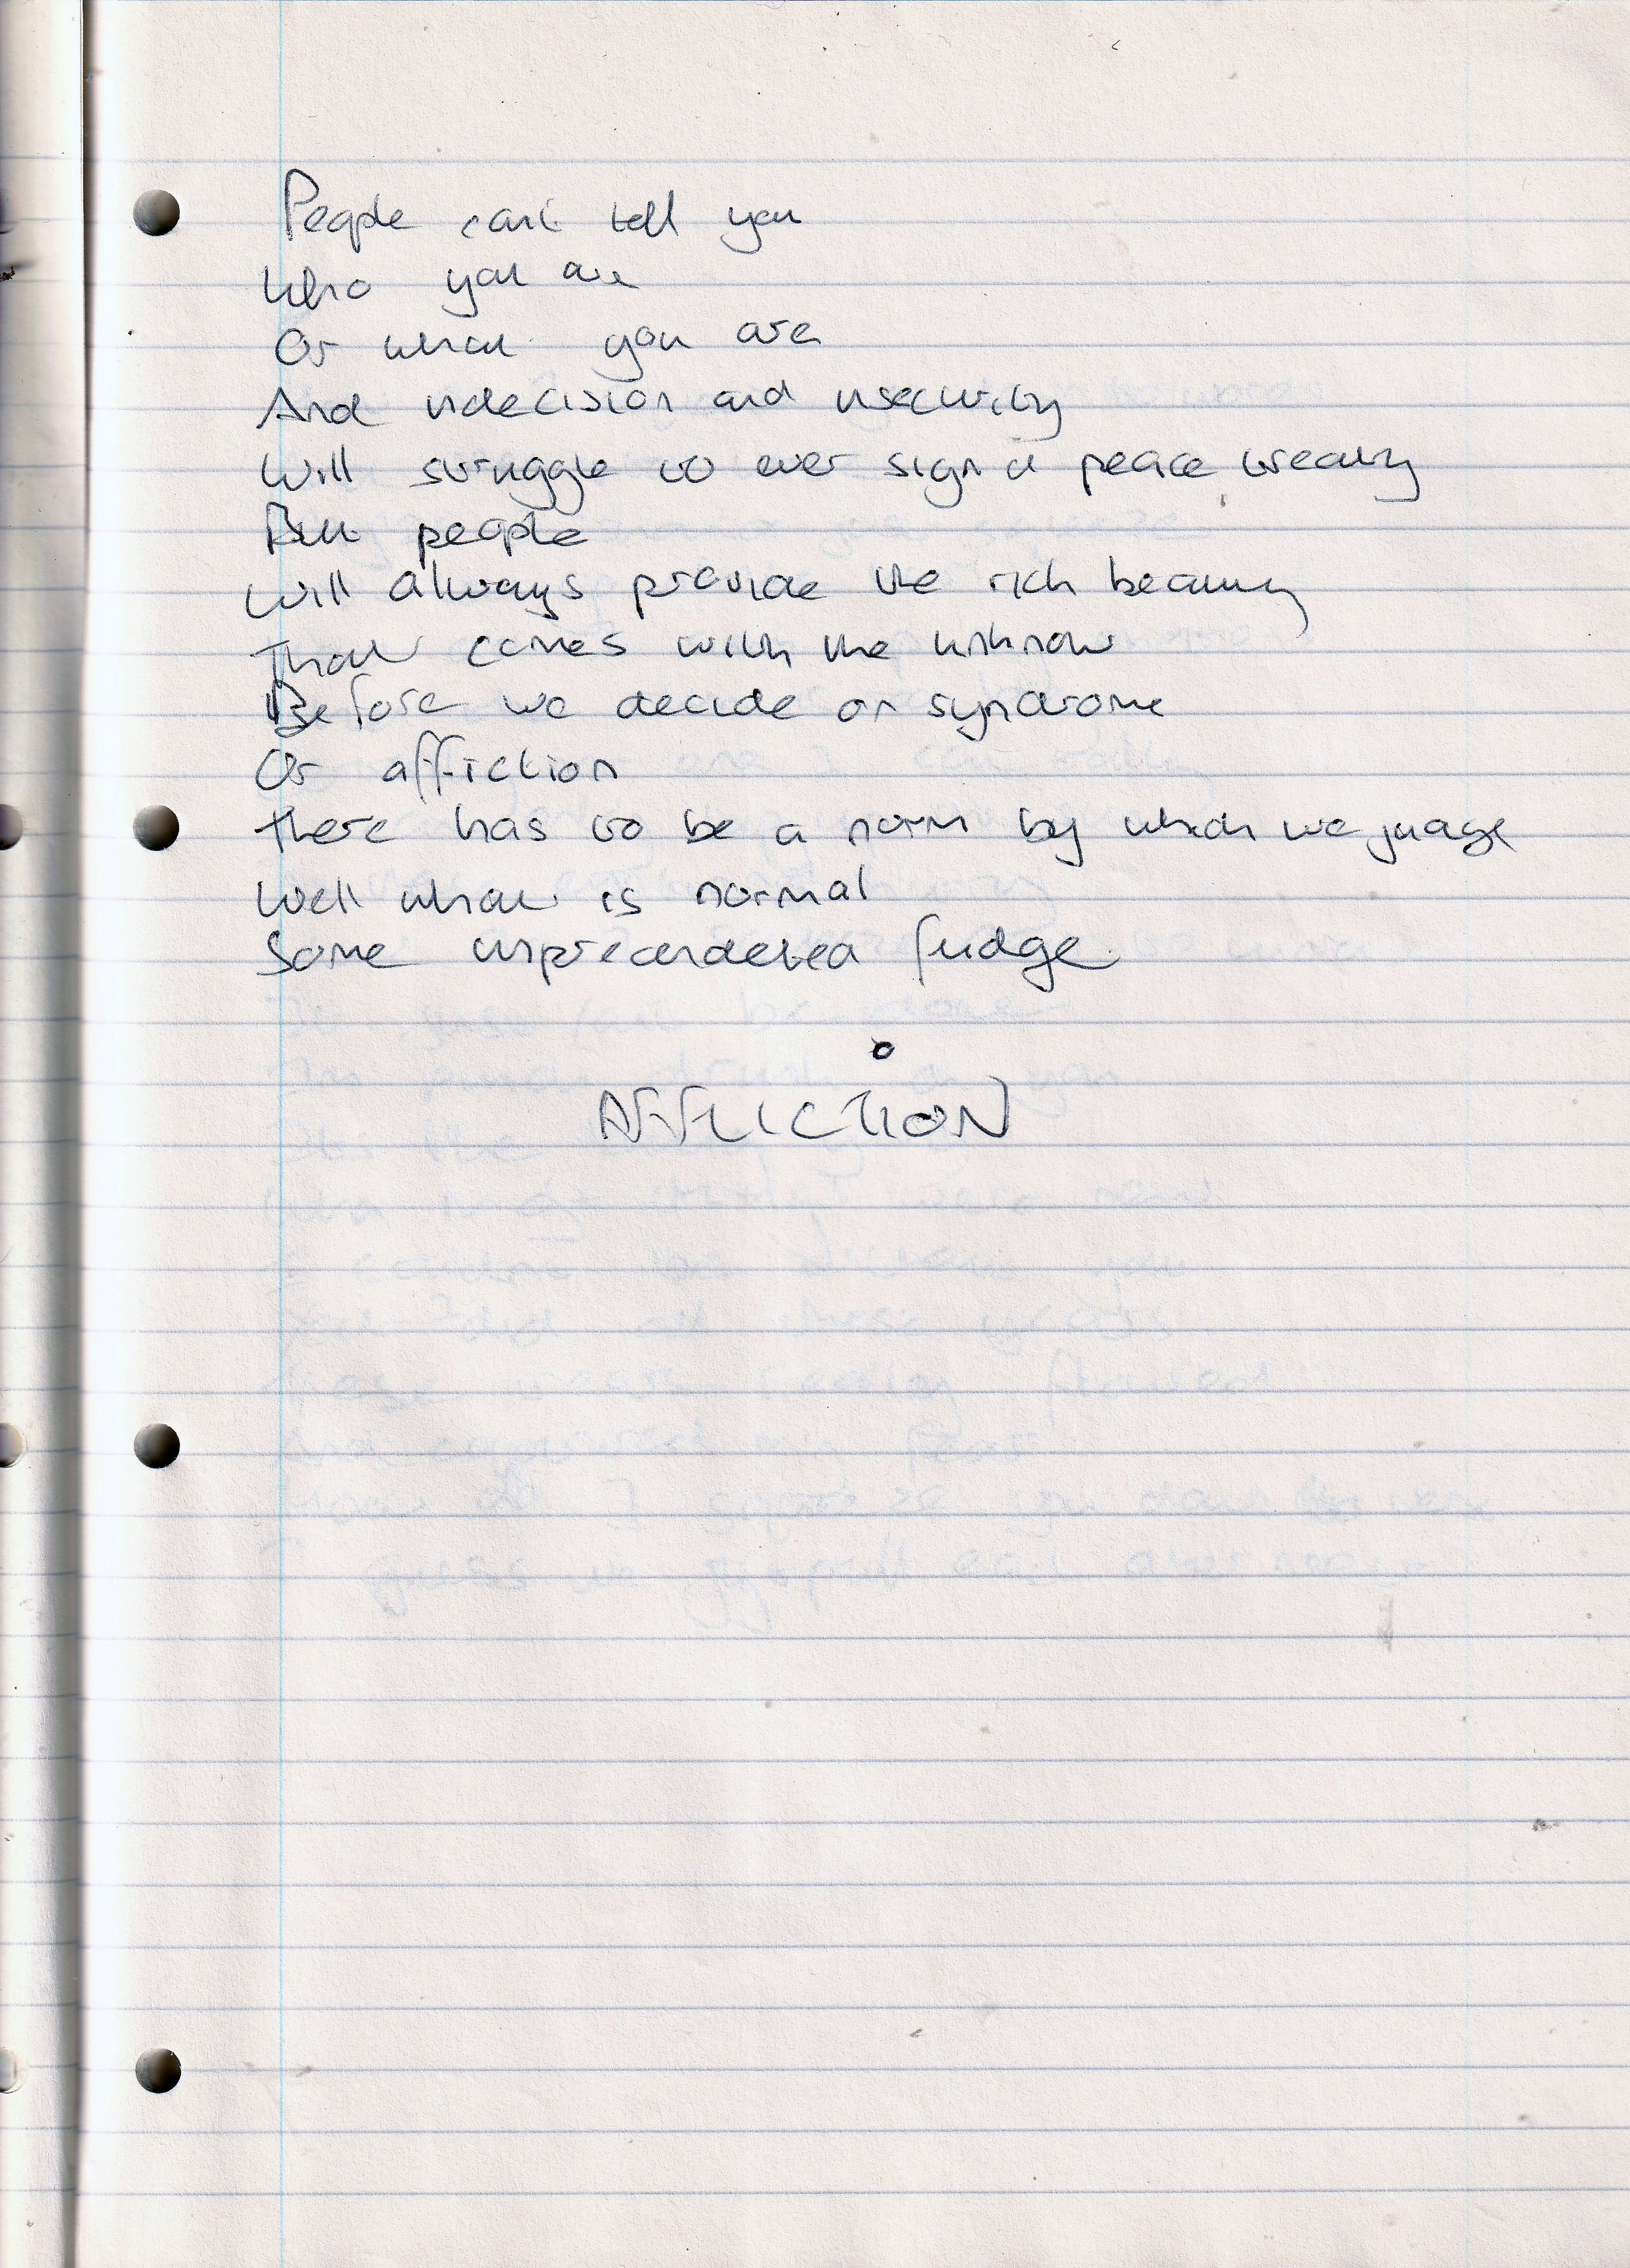 People can't tell you
Who you are
Or what you are
And indecision and insecurity
Will struggle to ever sign a peace treaty
But people
Will always provide the rich beauty
That comes with the unknow
Before we decide on syndrome
Or affiction
There has to be a norm by which we judge
Well what is normal
Some unprecendeted fudge.
AFFLICTION